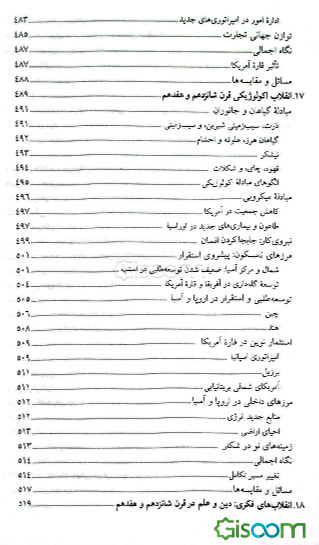 اداره امور در امپراتوری‌های جدید ۴۸۳
توازن جهانی تجارت ۴۸۵
نگاه اجمالی ۴۸۷
تأثیر قارهٔ آمریکا ۴۸۷
مسائل و مقایسه‌ها ۴۸۸
۱۷. انقلاب اکولوژیکی قرن شانزدهم و هفدهم ۴۸۹
مبادلهٔ گیاهان و جانوران ۴۹۱
ذرت، سیب‌زمینی شیرین، و سیب‌زمینی ۴۹۱
گیاهان هرز، علوفه و احشام ۴۹۲
نیشکر ۴۹۳
قهوه، چای، و شکلات ۴۹۴
الگوهای مبادلهٔ اکولوژیکی ۴۹۵
مبادلهٔ میکروبی ۴۹۶
کاهش جمعیت در آمریکا ۴۹۷
طاعون و بیماری‌های جدید در اوراسیا ۴۹۷
نیروی کار: جابجا کردن انسان ۴۹۹
مرزهای نامسکون: پیشروی استقرار ۵۰۱
شمال و مرکز آسیا: ضعیف شدن توسعه‌طلبی در استپ ۵۰۱
توسعهٔ گله‌داری در آفریقا و قارهٔ آمریکا ۵۰۴
توسعه‌طلبی و استقرار در اروپا و آسیا ۵۰۵
چین ۵۰۶
هند ۵۰۸
استثمار نوین در قارهٔ آمریکا ۵۰۹
امپراتوری اسپانیا ۵۰۹
برزیل ۵۱۱
آمریکای شمالی بریتانیایی ۵۱۱
مرزهای داخلی در اروپا و آسیا ۵۱۲
منابع جدید انرژی ۵۱۲
احیای اراضی ۵۱۳
زمینه‌های نو در شکار ۵۱۳
نگاه اجمالی ۵۱۴
تغییر مسیر تکامل ۵۱۴
مسائل و مقایسه‌ها ۵۱۷
۱۸. انقلاب‌های فکری: دین و علم در قرن شانزدهم و هفدهم ۵۱۹
Gisoom